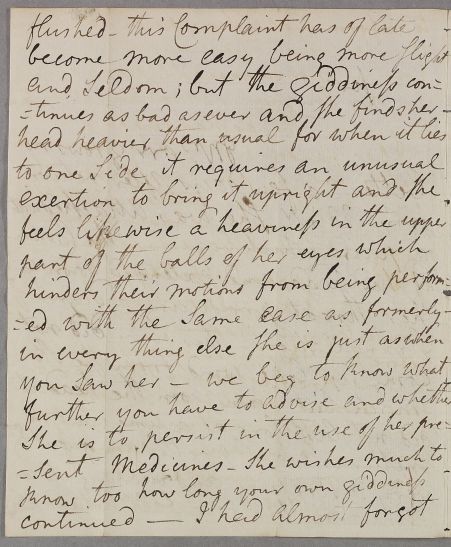 flushed - this Complaint has of late
become more easy being more slight
and Seldom; but the giddiness con-
=tinues as bad as ever and She finds her
head heavier than usual for when it lies
to one Side, it requires an unusual
exertion to bring it upright and She
feels likewise a heaviness in the upper
part of the balls of her eyes which
hinders their motions from being perform-
=ed with the Same ease as formerly -
in every thing else She is just as when
you Saw her - we beg to know what
further you have to advise and whether
She is to persist in the use of her pre-
=sent Medicines - She wishes much to
know too how long your own giddiness
continued — I had almost forgot